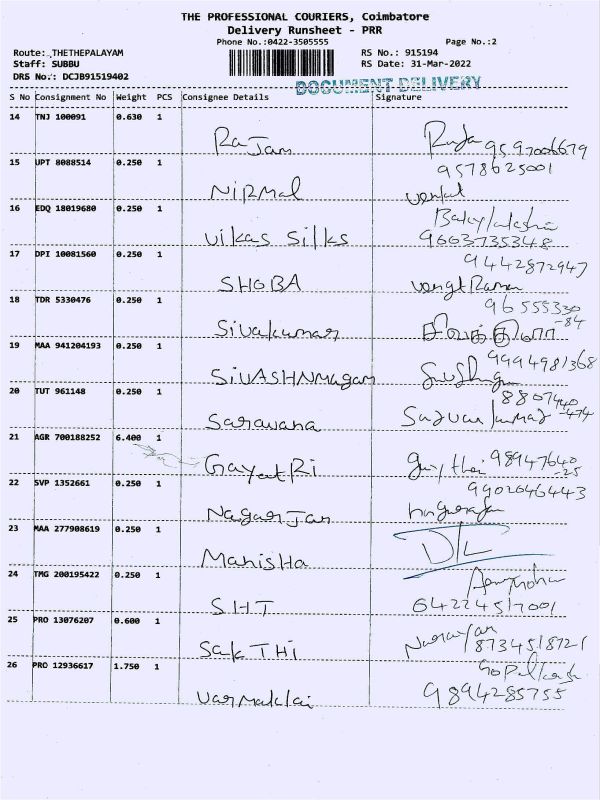 THE PROFESSIONAL COURIERS, Coimbatore
Delivery Runsheet - PRR
Phone No.:0422-3505555 Page No.:2
Route: THETHEPALAYAM RS No.: 915194
Staff: SUBBU RS Date: 31-Mar-2022
DRS No.: DCJB91519402
DOCUMENT DELIVERY
S No Consignment No Weight PCS Consignee Details Signature
14 TNJ 100091 0.630 1
Rajam 9597006679
15 UPT 8088514 0.250 1 9578625001
Nirmal venkat
16 EDQ 18019680 0.250 1
Vikas Silks 9663735348
17 DPI 10081560 0.250 1 9442872947
SHOBA
18 TDR 5330476 0.250 1 96555330
Sivakumar -84
19 MAA 941204193 0.250 1 9994981368
20 TUT 961148 0.250 1 8807440
Saravana -474
21 AGR 700188252 6.400 1
GayatRi 98947640
-25
22 SVP 1352661 0.250 1 9902646443
Nagarjan
23 MAA 277908619 0.250 1
Manisha
24 TMG 200195422 0.250 1
SHT 64224517001
25 PRO 13076207 0.600 1 Narayan
SakTHi 8734518721
26 PRO 12936617 1.750 1
9894285755